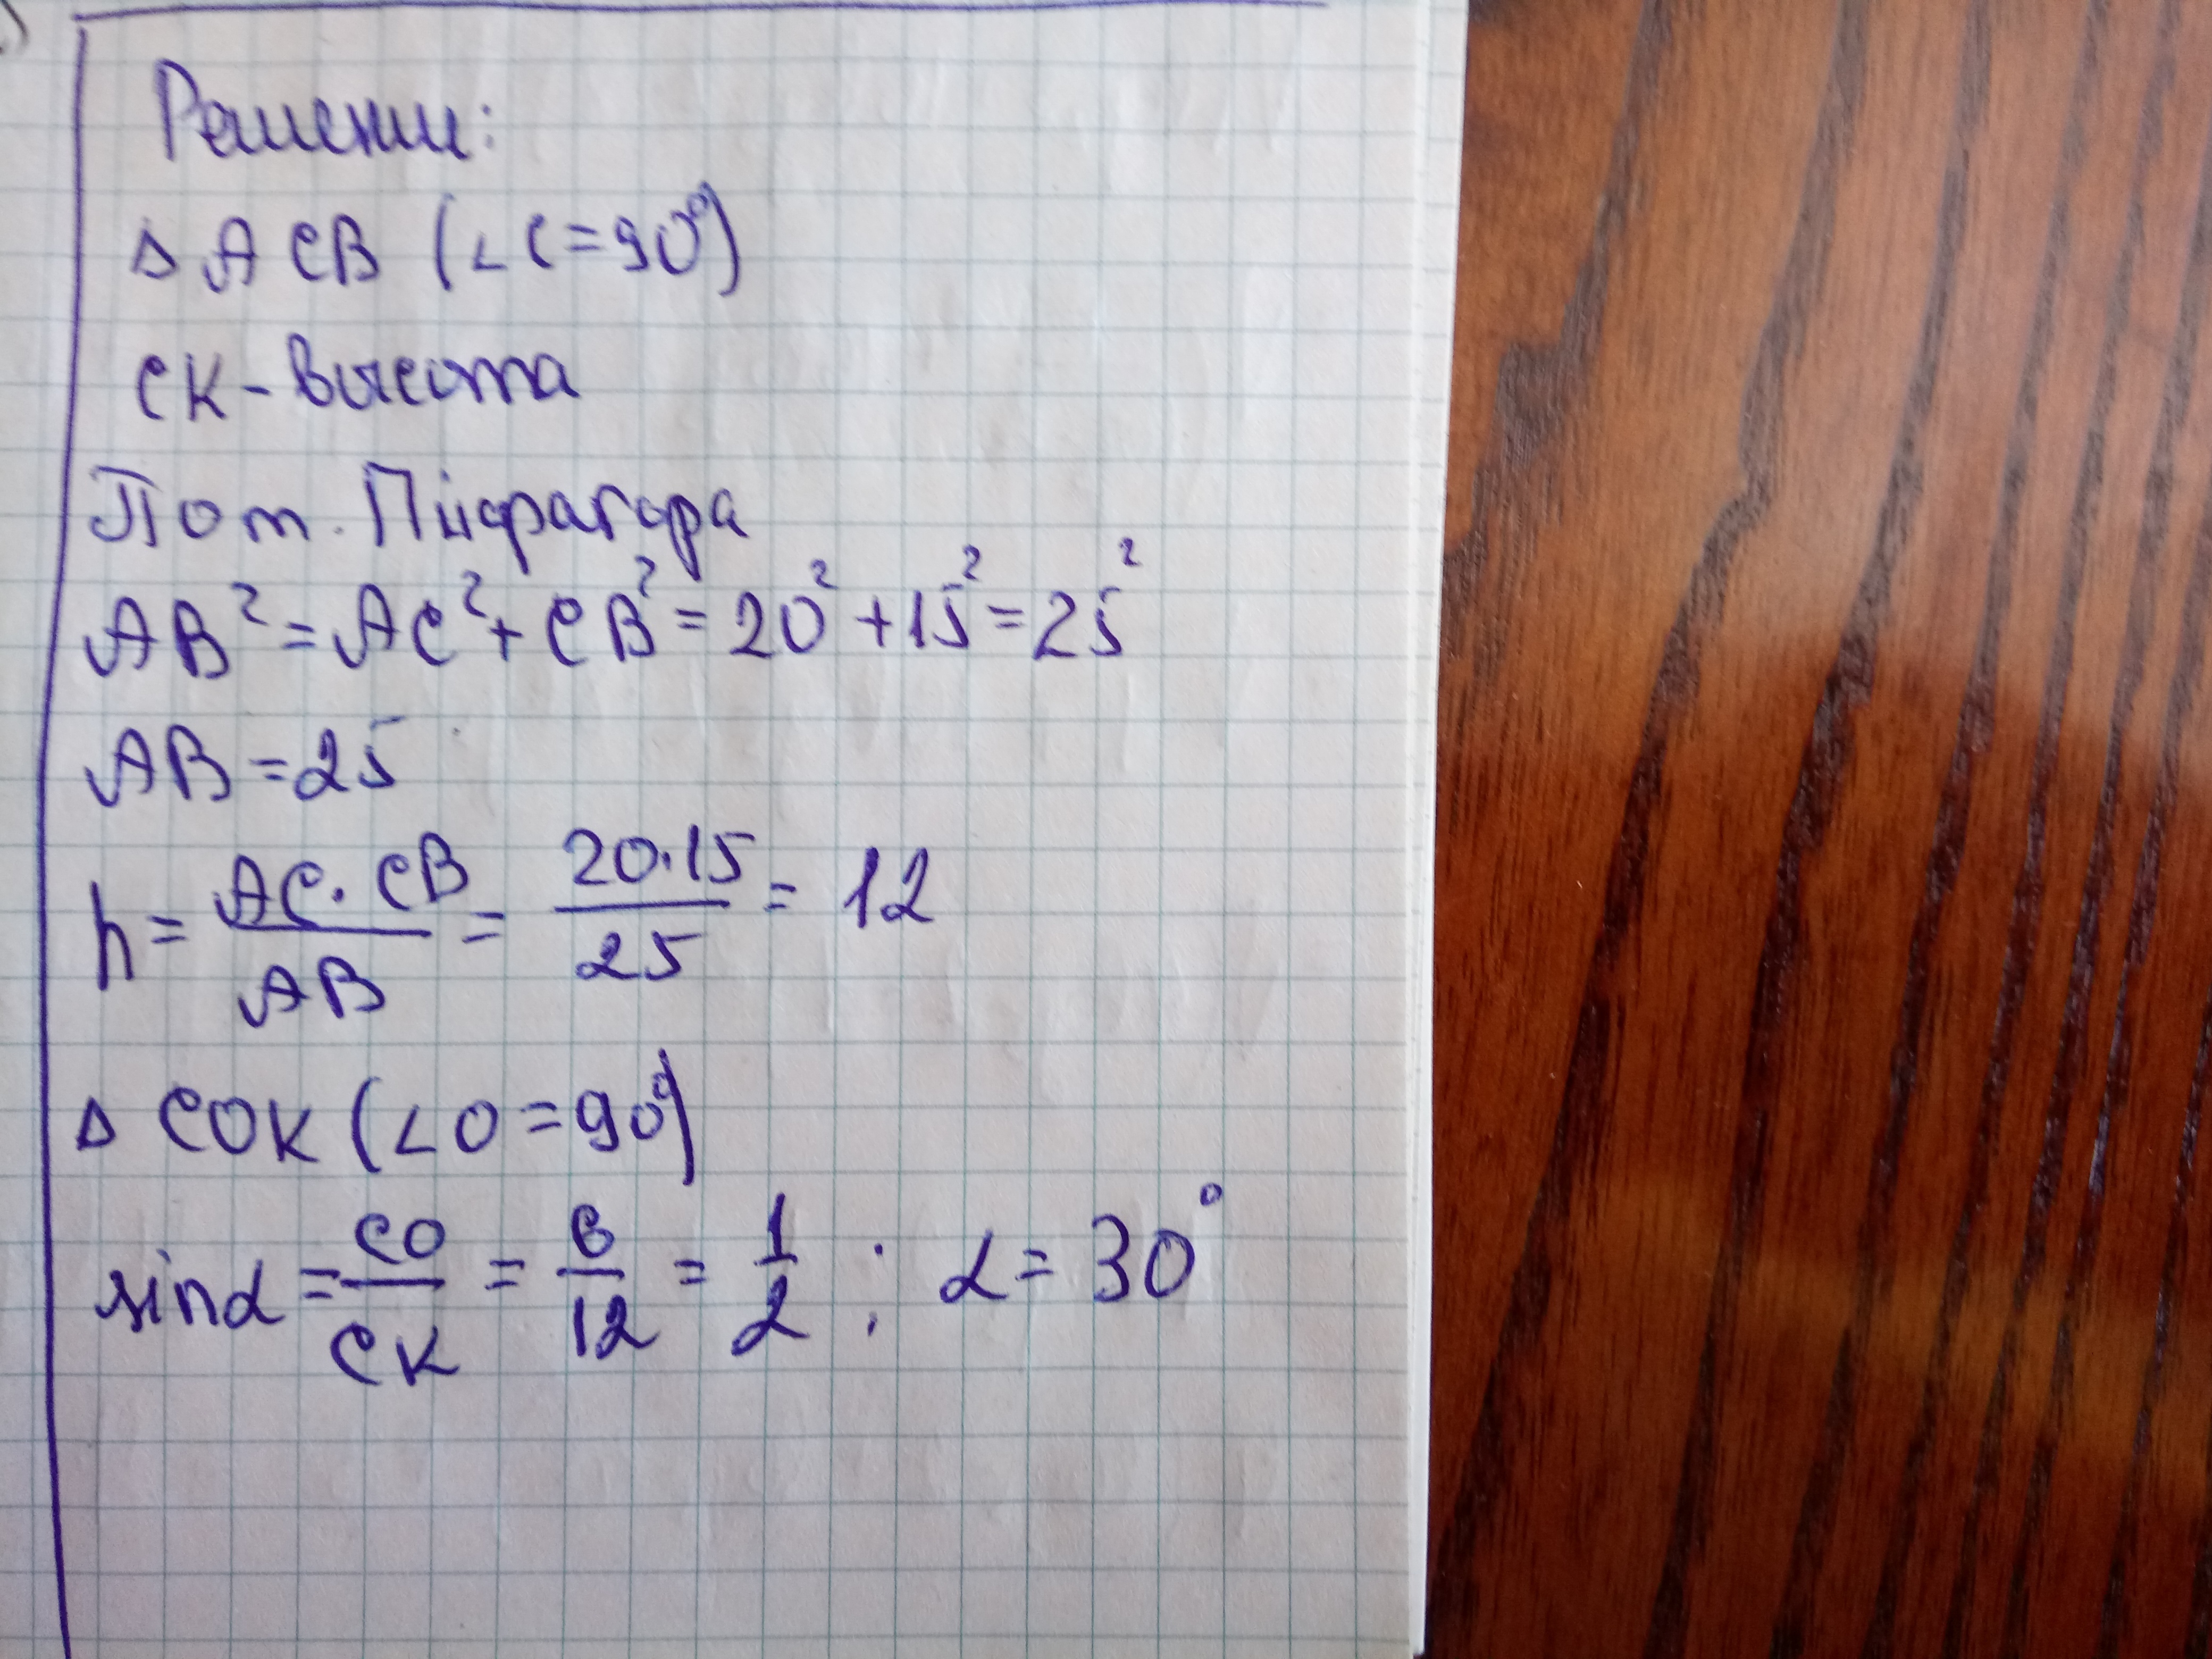 Решение:
∆ ACB (∠C=90°)
CK - высота
По т. Пифагора
AB² = AC² + CB² = 20² + 15² = 25²
AB = 25
h = AC · CB / AB = 20·15 / 25 = 12
∆ COK (∠O = 90°)
sin α = CO / CK = 6 / 12 = 1 / 2 ; α = 30°